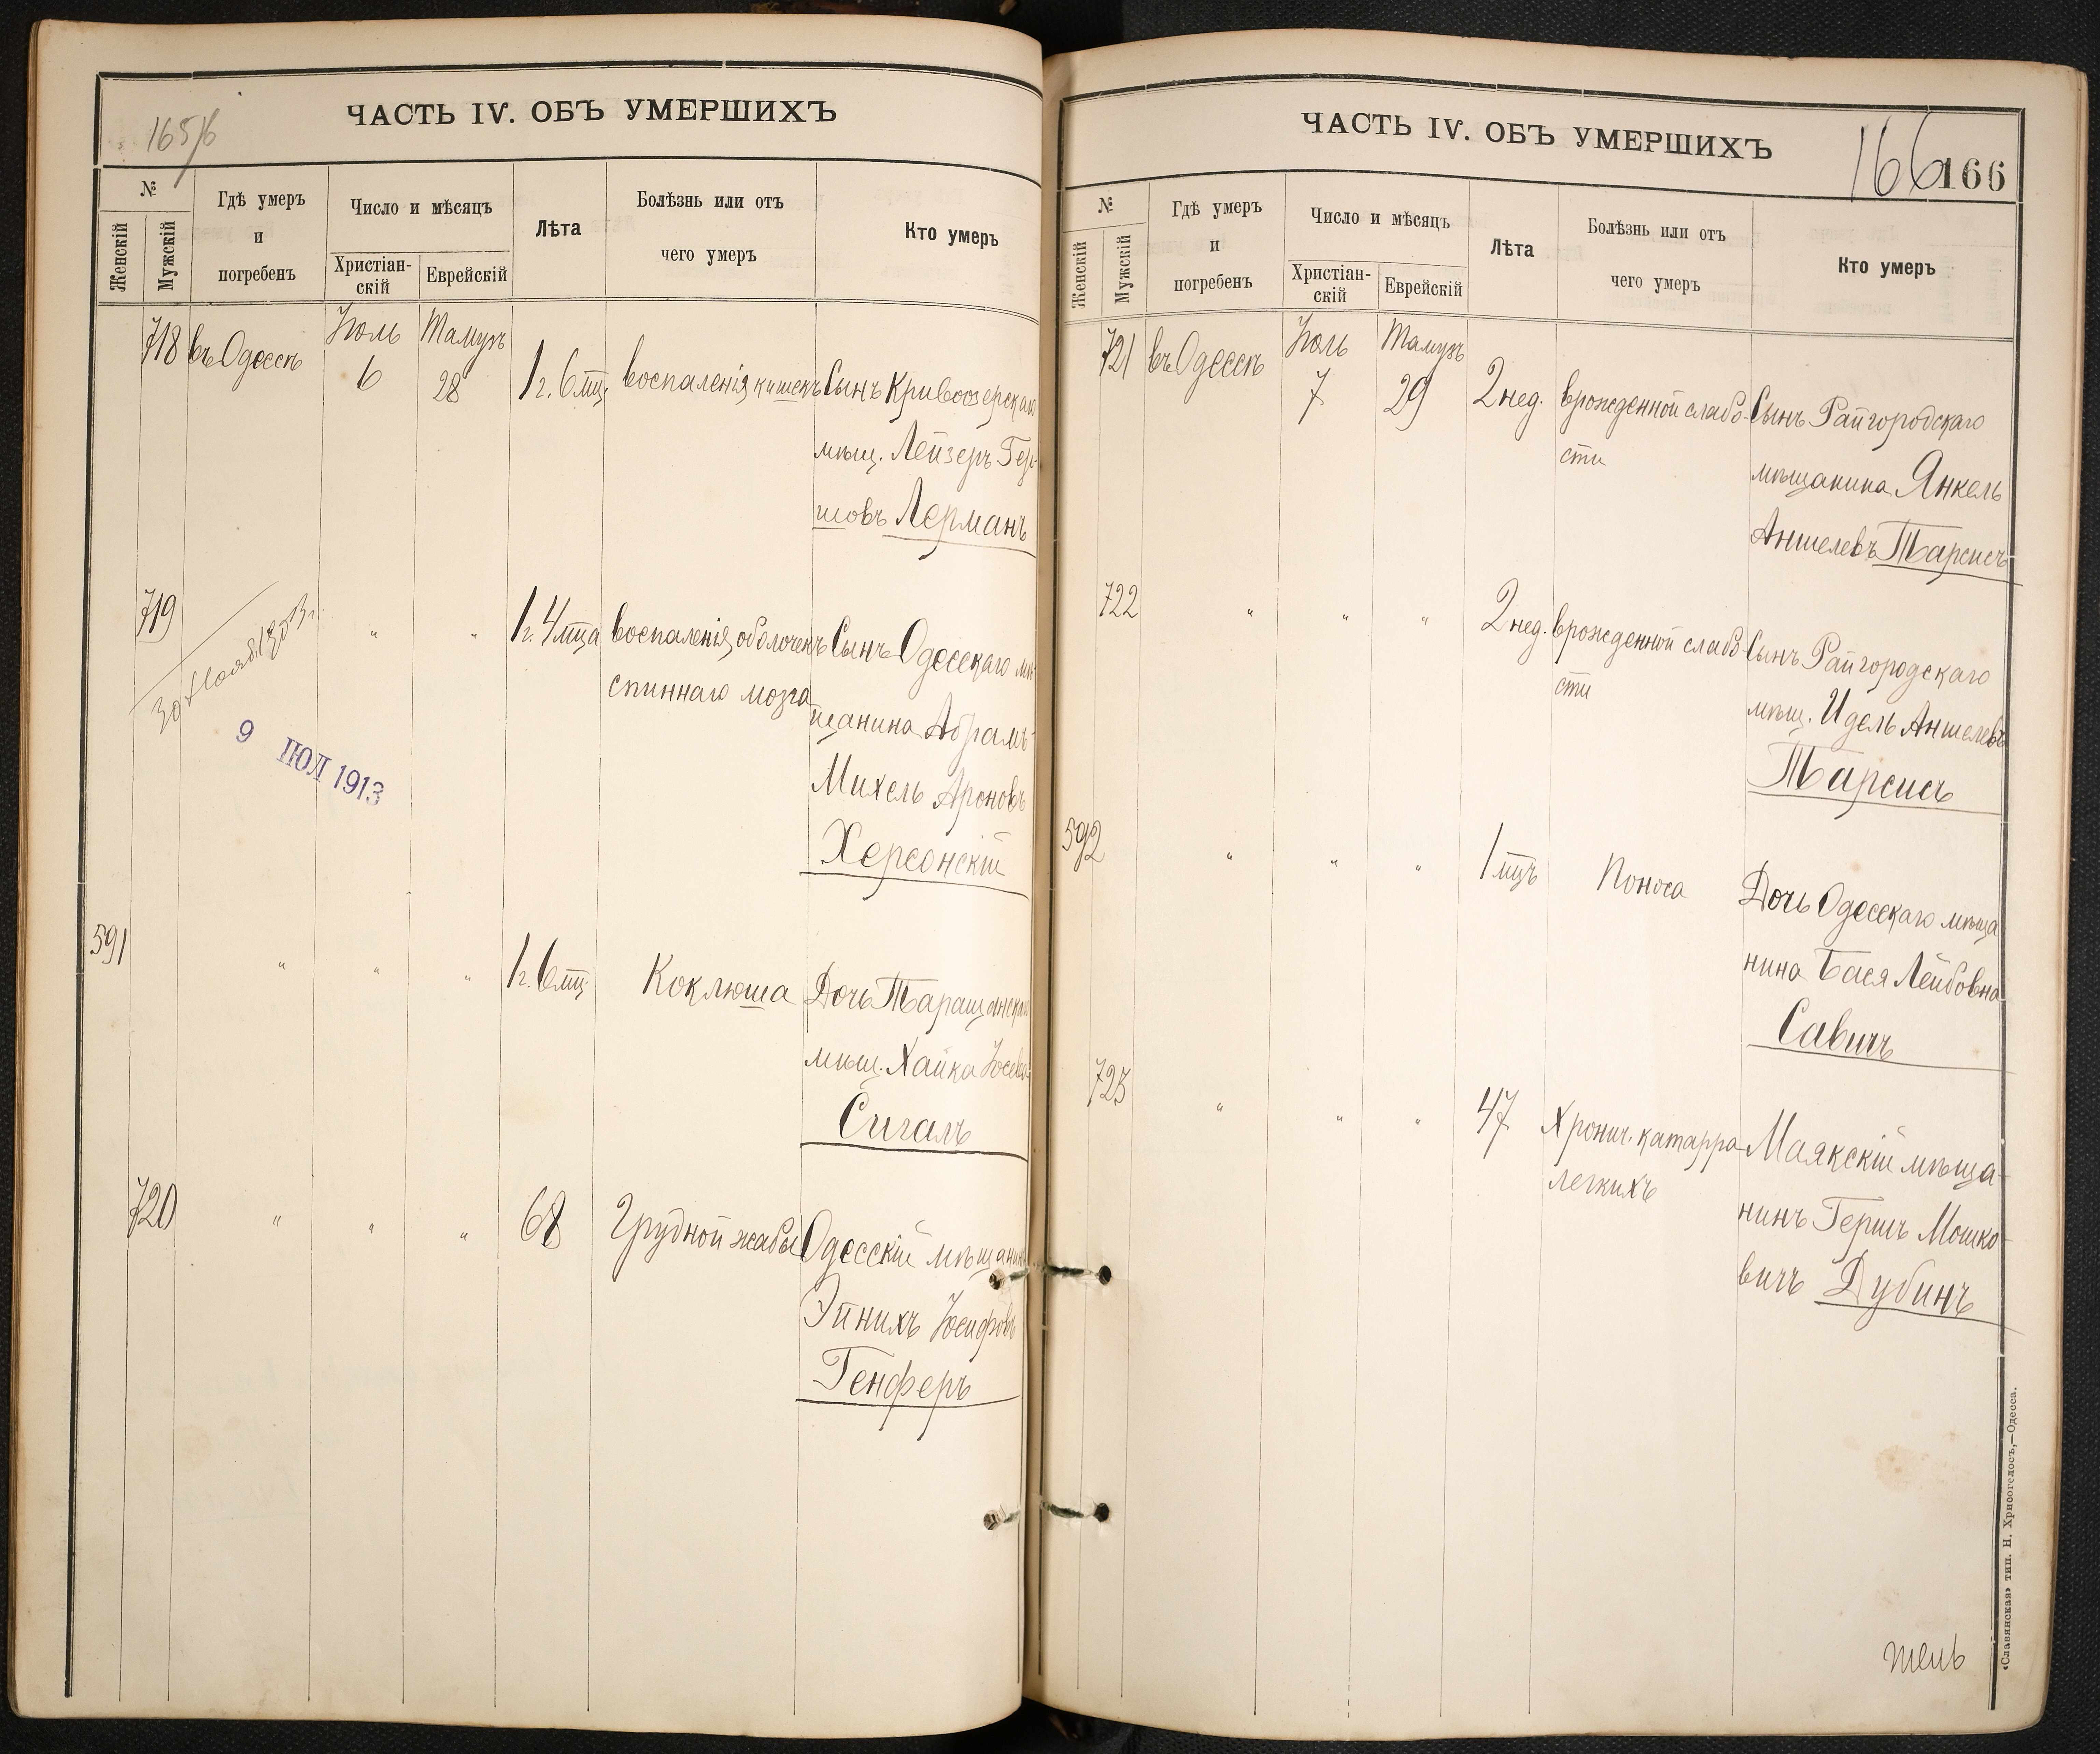 165/6
ЧАСТЬ IV. ОБЪ УМЕРШИХЪ
№
Женскій
Мужскій
Гдѣ умеръ
и
погребенъ
Число и мѣсяцъ
Христіан-
скій
Еврейскій
Лѣта
Болѣзнь или отъ
чего умеръ
Кто умеръ
718 въ Одессѣ Іюль 6 Тамузъ 28 1 г. 6 мц. воспаленія кишекъ Сынъ Кривоозерскаго
мѣщ. Лейзеръ Гер-
шовъ Лерманъ
719 " " 1 г. 4 мца воспаленія оболочекъ Сынъ Одесскаго мѣ-
спиннаго мозга
щанина Абрамъ-
Михель Ароновъ
Херсонскій
9 ІЮЛ 1913
591 " " " 1 г. 6 мц. Коклюша Дочь Таращанскаго
мѣщ. Хайка
Сигалъ
720 " " " 68 Грудной жабы Одесскій мѣщанинъ
Эйнихъ Іосифовъ
Генферъ
ЧАСТЬ IV. ОБЪ УМЕРШИХЪ
166
166
№
Женскій
Мужскій
Гдѣ умеръ
и
погребенъ
Число и мѣсяцъ
Христіан-
скій
Еврейскій
Лѣта
Болѣзнь или отъ
чего умеръ
Кто умеръ
721 въ Одессѣ Іюль 7 Тамузъ 29 2 нед. врожденной слабо- Сынъ Райгородскаго
сти
мѣщанина Янкель
Аншелевъ Тарсисъ
722 " " " 2 нед. врожденной слабо- Сынъ Райгородскаго
сти
мѣщ. Идель Аншелевъ
Тарсисъ
592 " " " 1 мцъ Поноса Дочь Одесскаго мѣща
нина Бася Лейбовна
Савичъ
723 " " " 47 Хронич. катарра Маякскій мѣща-
легкихъ
нинъ Гершъ Мошко-
вичъ Дубинъ
тель
«Славянская» тип. Н. Хрисогелосъ,—Одесса.